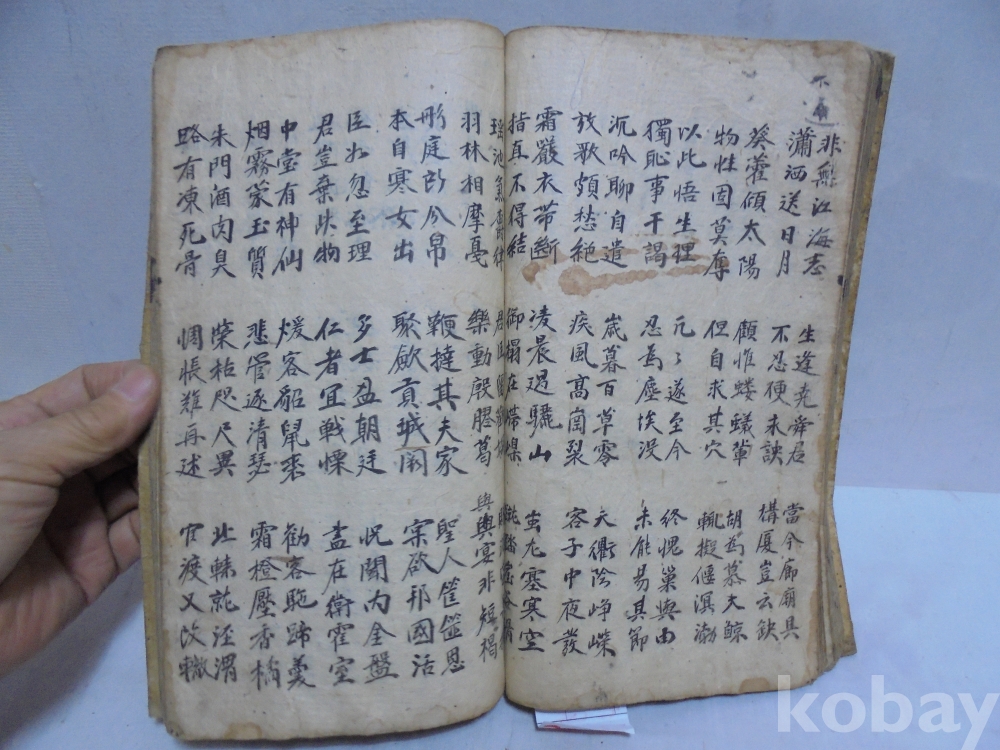 不通
非無江海志
瀟洒送日月
生逢堯舜君
不忍便永訣
當今廊廟具
構厦豈云缺
葵藿傾太陽
物性固莫奪
顧惟螻蟻輩
但自求其穴
胡為慕大鯨
輒擬偃溟渤
以此悟生理
獨恥事干謁
兀了遂至今
忍為塵埃没
終愧巢與由
未能易其節
沉吟聊自遣
放歌頗愁絶
歲暮百草零
疾風高崗裂
天衢陰崢嶸
客子中夜發
霜嚴衣帶斷
指真不得結
凌晨過驪山
御榻在嵽嵲
蚩尤塞寒空
踏崖谷滑
瑶池氣鬱律
羽林相摩戛
君臣
樂動殷膠葛
與宴非短褐
彤庭所分帛
本自寒女出
鞭撻其夫家
聚斂貢城闕
聖人筐篚恩
實欲邦國活
臣如忽至理
君豈棄此物
多士盈朝廷
仁者宜戰慄
况聞内金盤
盡在衛霍室
中堂有神仙
烟霧蒙玉質
煖客貂鼠裘
悲管逐清瑟
勸客駞蹄羹
霜橙壓香橘
朱門酒肉臭
路有凍死骨
榮枯咫尺異
惆悵難再述
北轅就涇渭
官渡又改轍
kobay